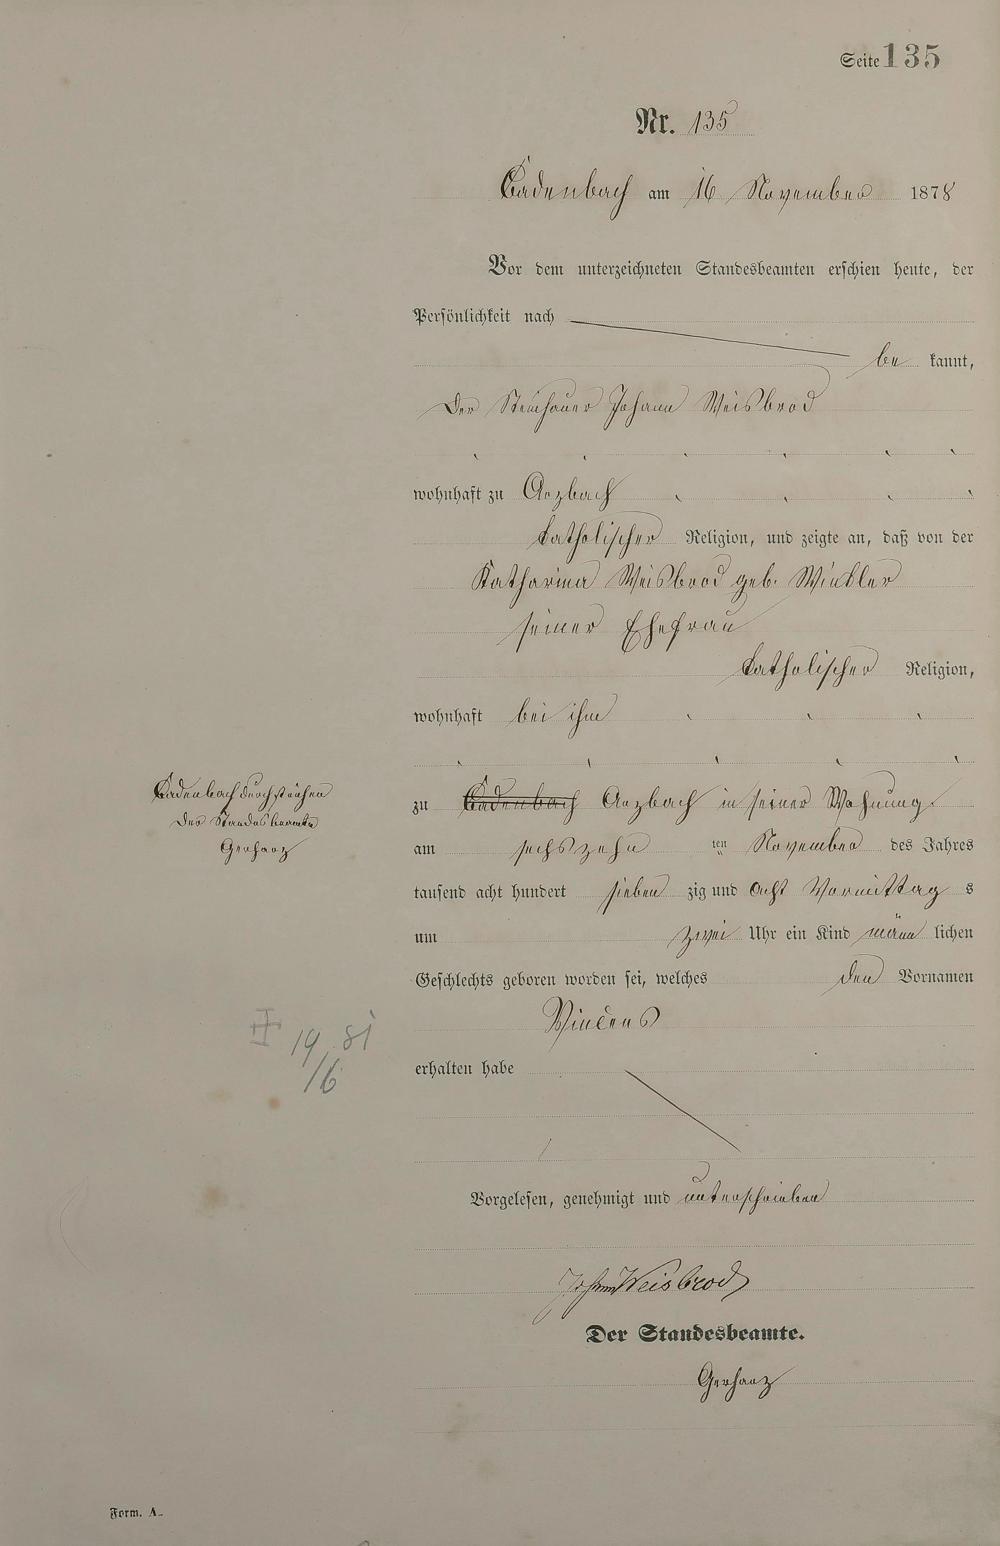 Seite 135
Nr. 135
Cadenbach am 16 November 1878
Vor dem unterzeichneten Standesbeamten erschien heute, der
Persönlichkeit nach
be kannt,
der Steinhauer Johann Weisbrod
wohnhaft zu Arzbach
katholischer Religion, und zeigte an, daß von der
Katharina Weisbrod geb. Winkler
seiner Ehefrau
katholischer Religion,
wohnhaft bei ihm
Cadenbach durchstrichen
Der Standesbeamte
Gerharz
zu Cadenbach Arzbach in seiner Wohnung
am sechszehn ten November des Jahres
tausend acht hundert sieben zig und acht Vormittag s
um zwei Uhr ein Kind männ lichen
Geschlechts geboren worden sei, welches den Vornamen
Vincens
19/6 81
erhalten habe
Vorgelesen, genehmigt und unterschrieben
Johann Weisbrod
Der Standesbeamte.
Gerharz
Form. A.